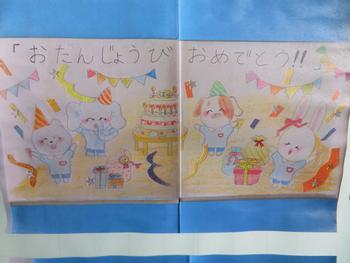 「おたんじょうび おめでとう!!」